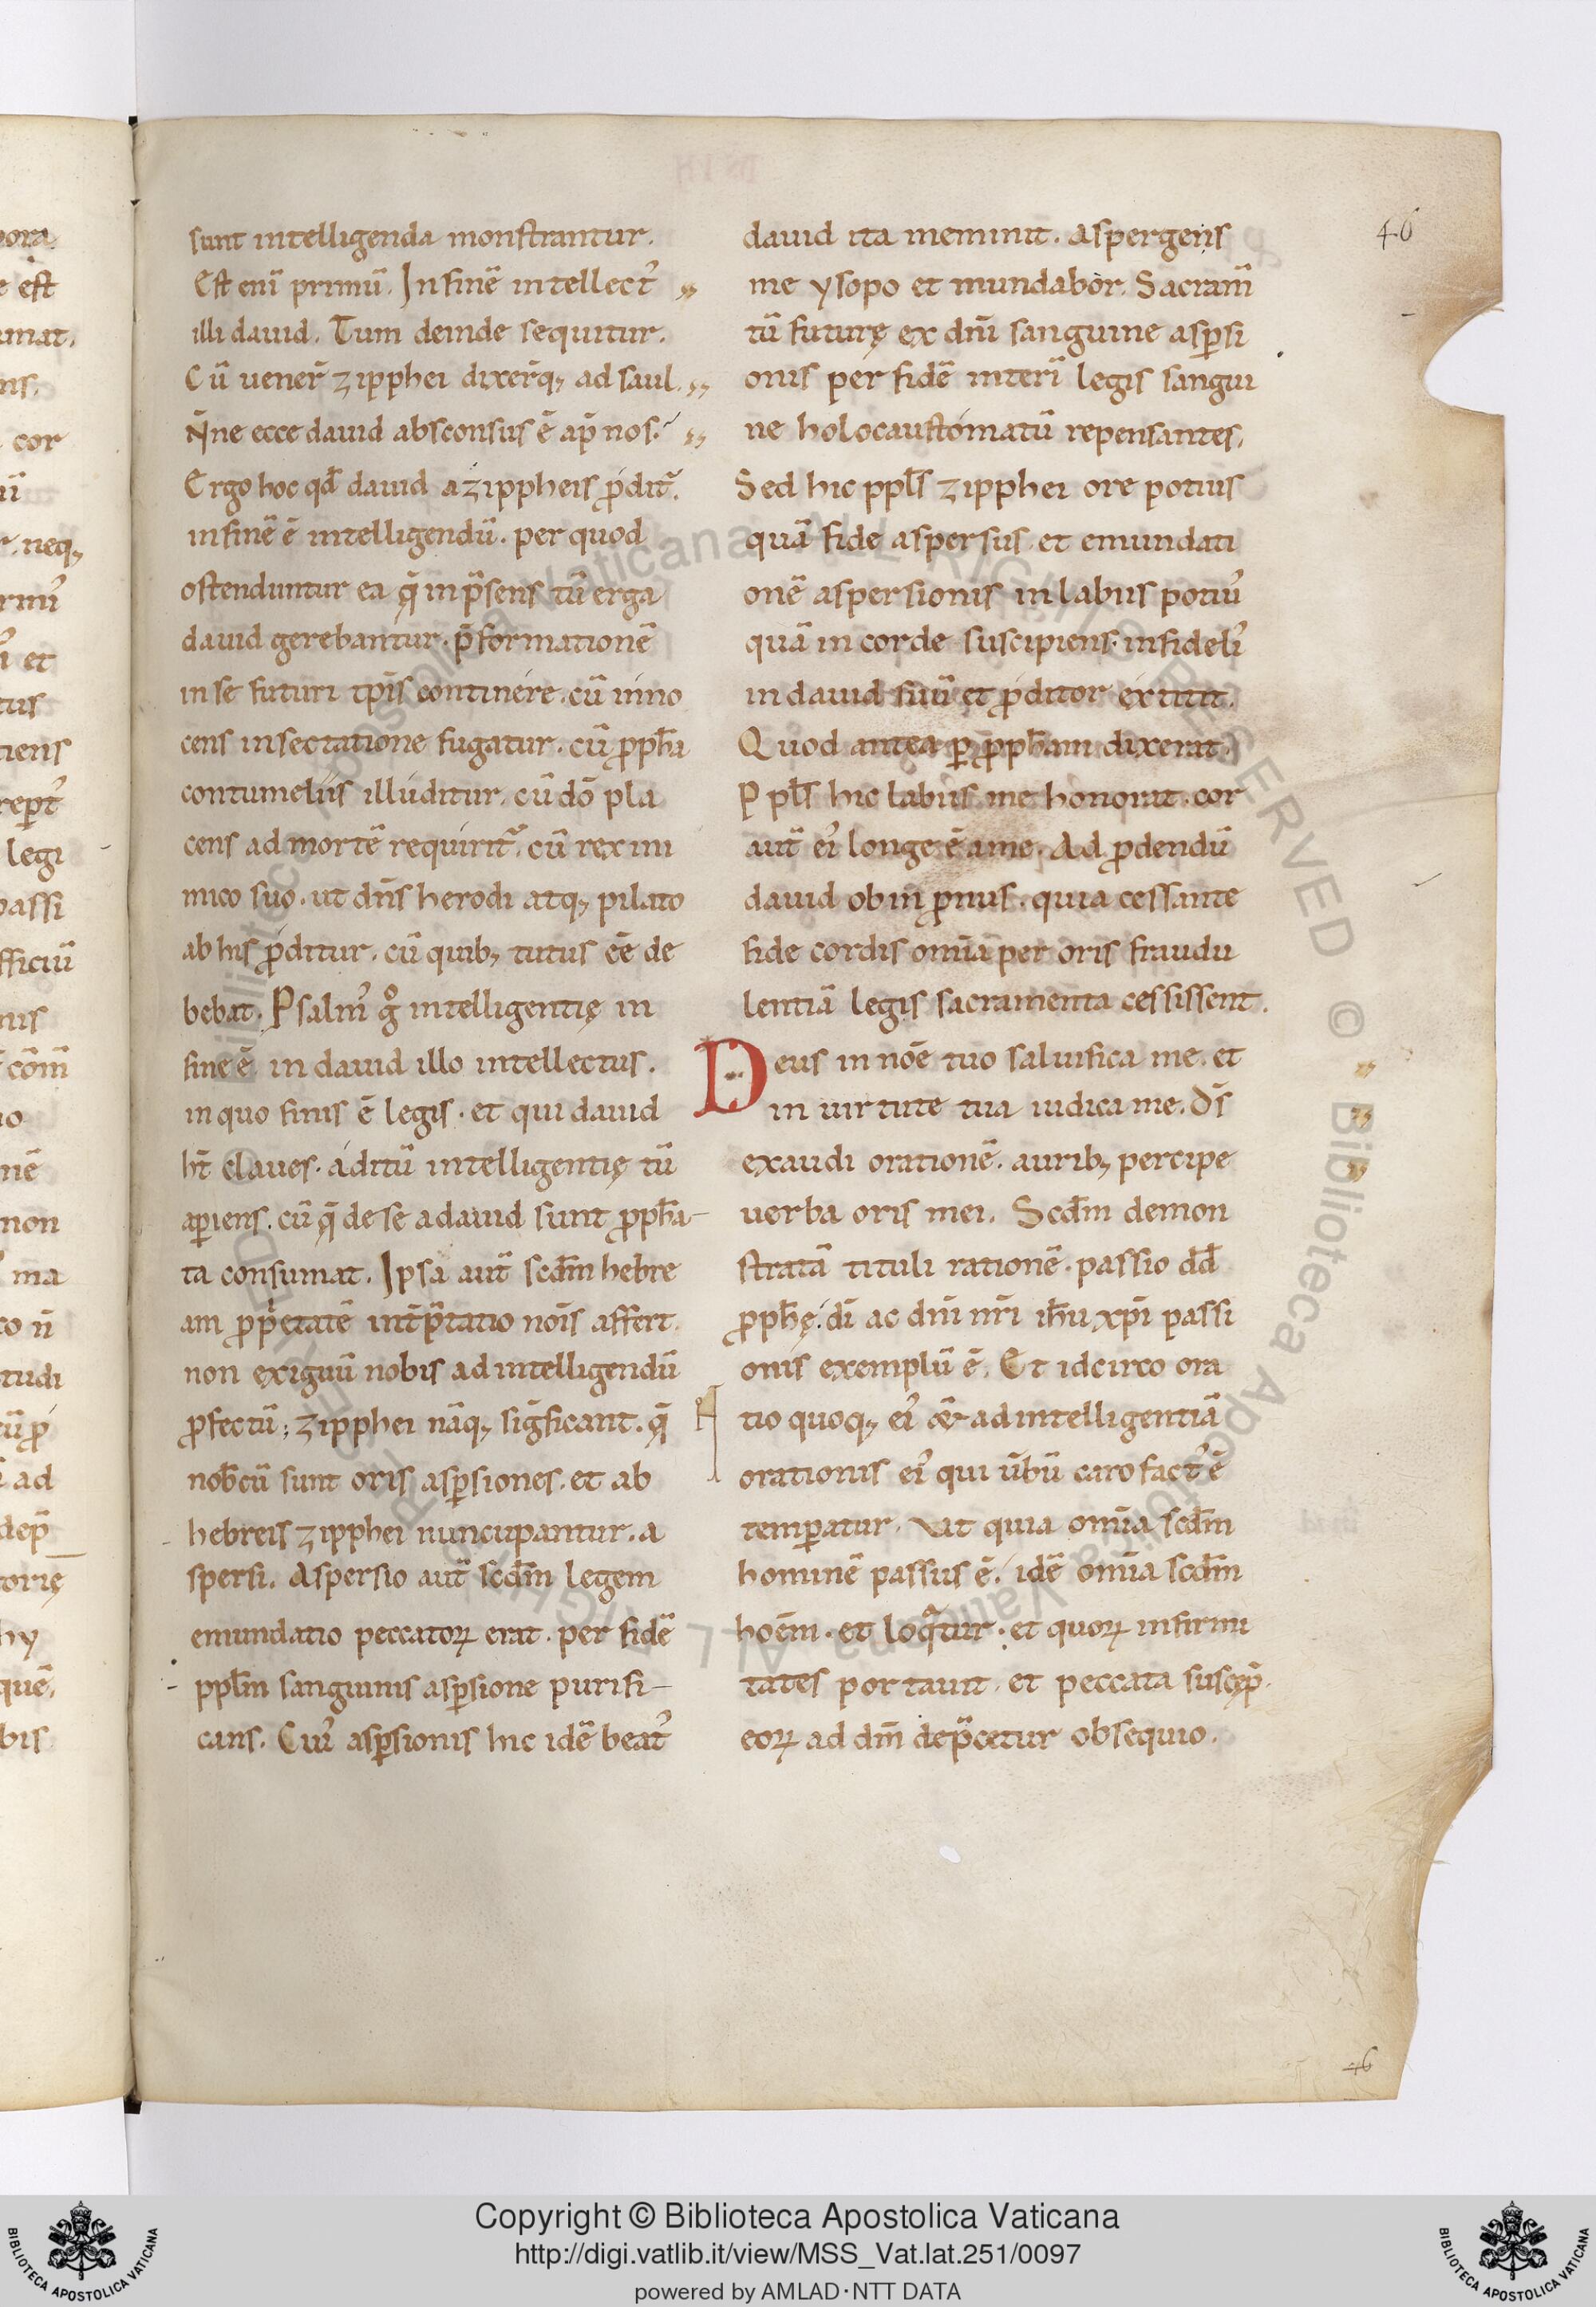 46
sunt intelligenda monstrantur.
Est eni᷃ primu᷃. In fine᷃ intellect᷒
illi dauid. Tum deinde sequitur.
Cu᷃ uener̃ zipphei dixer̃q; ad saul.
N̄ne ecce dauid absconsus ē ap̄ nos.
Ergo hoc qd̄ dauid a zippheis ꝓdit᷑.
in fine᷃ ē intelligendu᷃. per quod
ostenduntur ea q̄ in p̄sens tu᷃ erga
dauid gerebantur. p̄formatione᷃
in se futuri tp̄is continere. cu᷃ inno
cens insectatione fugatur. cu᷃ ꝓph̄a
contumeliis illuditur. cu᷃ dō pla
cens ad morte᷃ requirit᷑. cu᷃ rex ini
mico suo. ut dn̄s herodi atq; pilato
ab his ꝓditur. cu᷃ quib; tutus ēē de
bebat. Psalm᷒ gͦ intelligentię in
fine ē in dauid illo intellectus.
in quo finis ē legis. et qui dauid
ht̄ claues. aditu᷃ intelligentię tu᷃
aꝑiens. cu᷃ q̄ de se a dauid sunt ꝓph̄a-
ta consumat. Ipsa aut᷃ scd̄m hebre
am ꝓp̄etate᷃ int̄p̄tatio nōis affert.
non exiguu᷃ nobis ad intelligendu᷃
ꝓfectu᷃; zipphei na᷃q; sig̃ficant. q̄
nob̄cu᷃ sunt oris asꝑsiones. et ab
hebreis zipphei nuncupantur. a
spersi. Aspersio aut᷃ scd̄m legem
emundatio peccatoꝝ erat. per fide᷃
ppl̄m sanguinis asꝑsione purifi-
cans. Cui᷒ asꝑsionis hic ide᷃ beat᷒
dauid ita meminit. Aspergens
me ysopo et mundabor. Sacram̄
tu᷃ futurę ex dn̄i sanguine asꝑsi
onis per fide᷃ interi᷃ legis sangui
ne holocaustomatu᷃ repensantes.
Sed hic ppl̄s zipphei ore potius
qua᷃ fide aspersus. et emundati
one᷃ aspersionis in labiis potiu᷒
qua᷃ in corde suscipiens. infideli᷒
in dauid suu᷃ et ꝓditor extitit.
Quod antea ꝑ ꝓph̄am dixerat.
Ppl̄s hic labiis me honorat. cor
aut᷃ ei᷒ longe ē a me. Ad ꝓdendu᷃
dauid ob in ꝓnus. quia cessante
fide cordis om̄ia per oris fraudu
lentia᷃ legis sacramenta cessissent.
Deus in noē tuo saluifica me. et
in uirtute tua iudica me. Ds̄
exaudi oratione᷃. aurib; percipe
uerba oris mei. Scd̄m demon
strata᷃ tituli ratione᷃. passio dd̄
ꝓph̄ę. dī ac dn̄i nr̄i ih̄u xp̄i passi
onis exemplu᷃ ē. Et idcirco ora
tio quoq; ei᷒ ad intelligentia᷃
orationis ei᷒ qui ūbu᷃ caro fact᷒ ē
temꝑatur. Vt quia om̄ia scd̄m
homine᷃ passus ē. ide᷃ om̄ia scd̄m
hoēm. et loq̄tur. et quoꝝ infirmi
tates portauit. et peccata suscep̄.
eoꝝ ad dm̄ dep̄cetur obsequio.
46
Copyright © Biblioteca Apostolica Vaticana
http://digi.vatlib.it/view/MSS_Vat.lat.251/0097
powered by AMLAD·NTT DATA